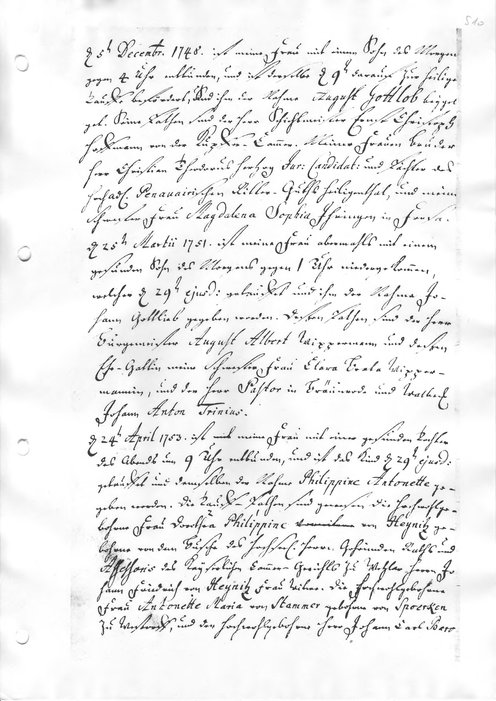 510
d 5t Decembr. 1748. ist meine Frau mit einem Sohn des Morgens
gegen 4 Uhr entbunden, und ist derselbe d 9t darauf zur heiligen
Tauffe befördert, und ihm der Nahme August Gottlob beygel
get. Seine Pathen sind der Herr Schichtmeister Ernst Christoph
von der Kupfer Meiner Frauen Bruder
Herr Christian Theodorus Hertzog Jur: Candidat: und Pachter des
Hochadl. Ritter-Guths Heiligenthal, und meine
Schwester Frau Magdalena Sophia in
d 25t Martii 1751. ist meine Frau abermahls mit einem
gesunden Sohn des Morgens gegen 1 Uhr niedergekommen,
welcher d 29t ejusd: getaufft und ihm der Nahme Jo-
hann Gottlieb gegeben worden. Dessen Pathen sind der Herr
Bürgemeister August Albert Wippermann und dessen
Ehe-Gattin meine Schwester Frau Clara Wipper-
mannin, und der Herr Pastor in Bräunrode und Walbeck
Johann Anton Trinius.
d 24t April 1753. ist meine Frau mit einer gesunden Tochter
des Abends um 9 Uhr entbunden, und ist das Kind d 29t ejusd:
getaufft und demselben der Nahme Philippine Antonette ge-
geben worden. Die Tauff-Pathen sind gewesen die Hochwohlge-
bohrne Frau Dorothea Philippine von Heynitz ge-
bohrne von dem Busche des Hochsel. Herrn Geheimden Raths und
Assessoris des Kayserlichen Cammer-Gerichts zu Wetzlar Herrn Jo
hann Friedrich von Heynitz Frau Witwe. Die Hochwohlgebohrne
Frau Antonette Maria von Stammer gebohrne von Spoerken
zu und den Hochwohlgebohrne Herr Johann Carl